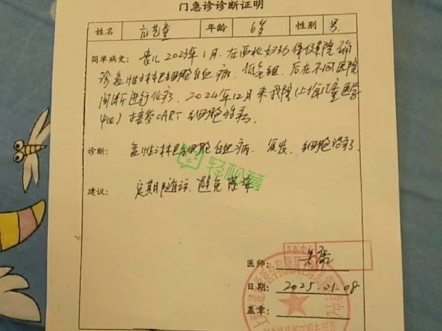 门急诊诊断证明
姓名 年龄 6岁 性别 男
简单病史：患儿2023年1月，在西北妇幼保健院确
诊急性淋巴细胞白血病，低危组，后在不同医院
间断进行化疗，2024年12月来我院(上海儿童医学
中心)接受CART细胞治疗
诊断： 急性淋巴细胞白血病，复发，细胞治疗
轻松筹
建议： 定期随访，避免感染
医师：
日期： 2025.01.08
盖章：